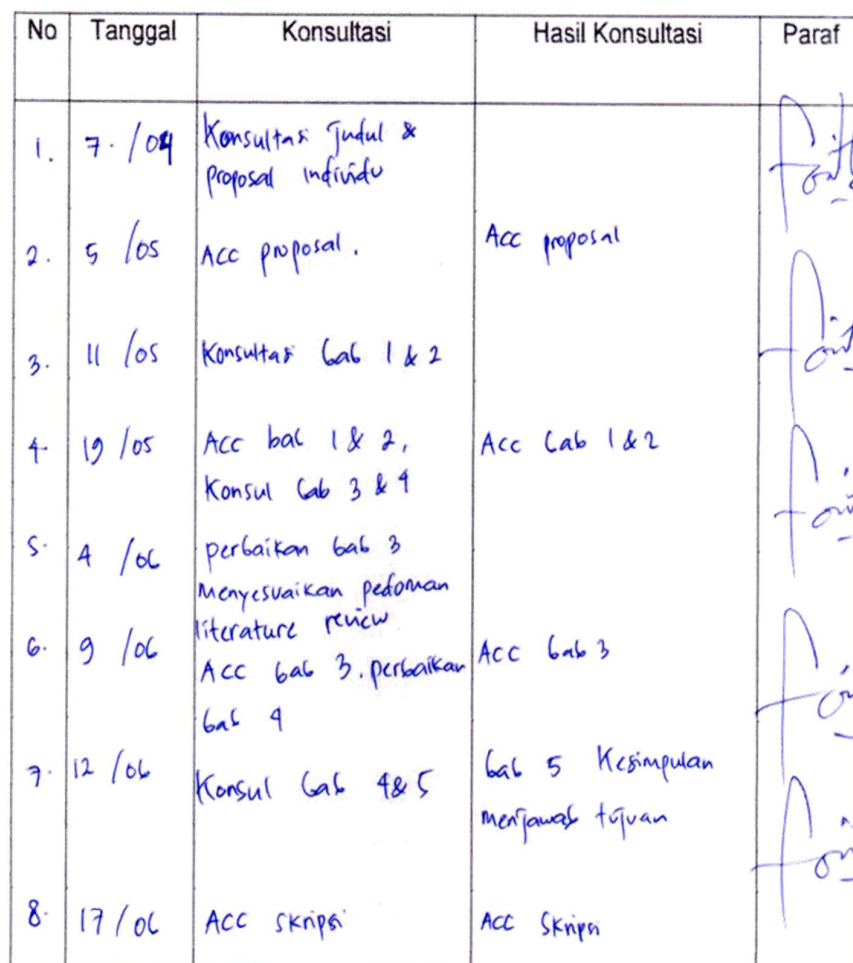 No Tanggal Konsultasi Hasil Konsultasi Paraf
1. 7. /04 Konsultasi Judul &
proposal individu
2. 5 /05 Acc proposal. Acc proposal
3. 11 /05 Konsultasi bab 1 & 2
4. 19 /05 Acc bab 1 & 2, Acc bab 1 & 2
Konsul bab 3 & 4
5. 4 /06 perbaikan bab 3
Menyesuaikan pedoman
literature review
6. 9 /06 Acc bab 3. perbaikan Acc bab 3
bab 4
7. 12 /06 Konsul bab 4 & 5 bab 5 Kesimpulan
menjawab tujuan
8. 17 /06 Acc skripsi Acc Skripsi